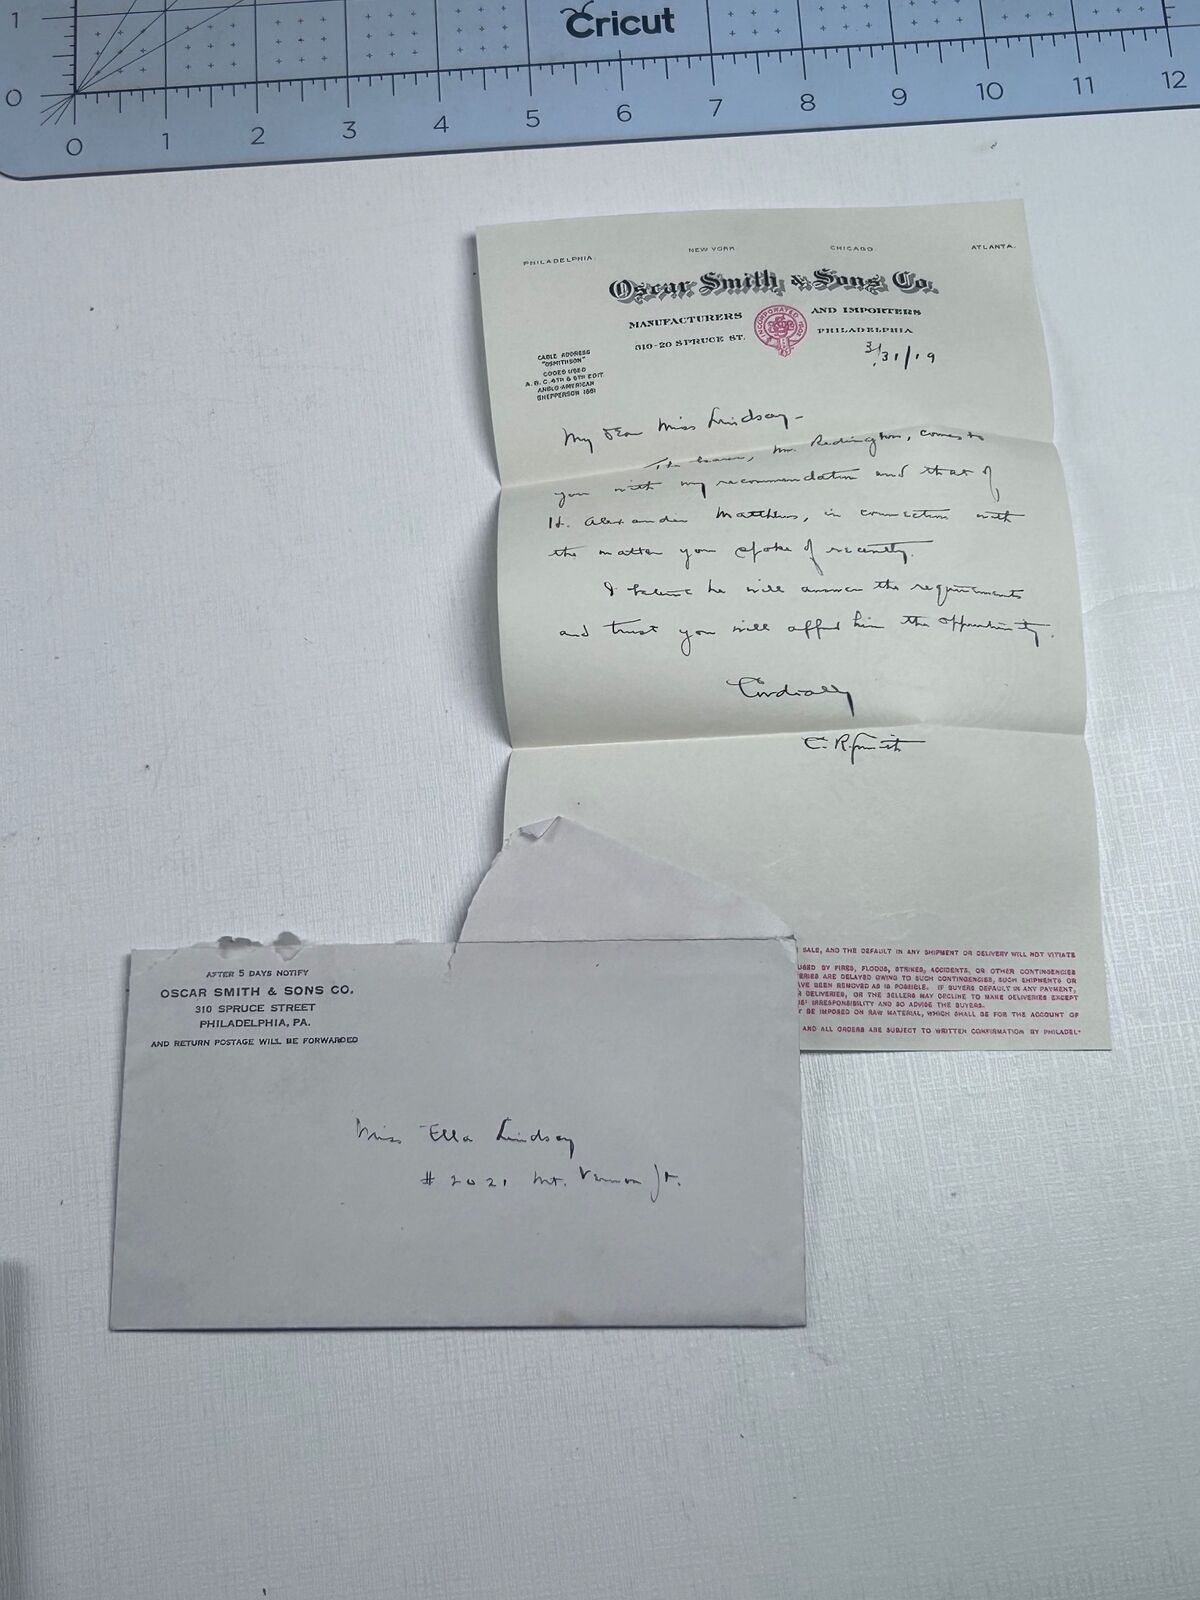 1
Cricut
0
0 1 2 3 4 5 6 7 8 9 10 11 12
PHILADELPHIA. NEW YORK CHICAGO. ATLANTA.
Oscar Smith & Sons Co.
MANUFACTURERS AND IMPORTERS
310-20 SPRUCE ST. PHILADELPHIA
INCORPORATED
3/31/19
CABLE ADDRESS
"OSMITHSON"
CODES USED
A.B.C. 4TH & 5TH EDIT.
ANGLO-AMERICAN
SHEPPERSON 1881
My dear Miss Lindsay-
The bearer, Mr. Redington, comes to
you with my recommendation and that of
Lt. Alexander Matthews, in connection with
the matter you spoke of recently.
I believe he will answer the requirements
and trust you will afford him the opportunity.
Cordially
R. Smith
SALE, AND THE DEFAULT IN ANY SHIPMENT OR DELIVERY WILL NOT VITIATE
USED BY FIRES, FLOODS, STRIKES, ACCIDENTS, OR OTHER CONTINGENCIES
ERIES ARE DELAYED OWING TO SUCH CONTINGENCIES, SUCH SHIPMENTS OR
VE BEEN REMOVED AS IS POSSIBLE. IF BUYERS DEFAULT IN ANY PAYMENT,
R DELIVERIES, OR THE SELLERS MAY DECLINE TO MAKE DELIVERIES EXCEPT
S' IRRESPONSIBILITY AND SO ADVISE THE BUYERS.
Y BE IMPOSED ON RAW MATERIAL, WHICH SHALL BE FOR THE ACCOUNT OF
AND ALL ORDERS ARE SUBJECT TO WRITTEN CONFIRMATION BY PHILADEL-
AFTER 5 DAYS NOTIFY
OSCAR SMITH & SONS CO.
310 SPRUCE STREET
PHILADELPHIA, PA.
AND RETURN POSTAGE WILL BE FORWARDED
Miss Ella Lindsay
# 2021 Mt. Vernon St.